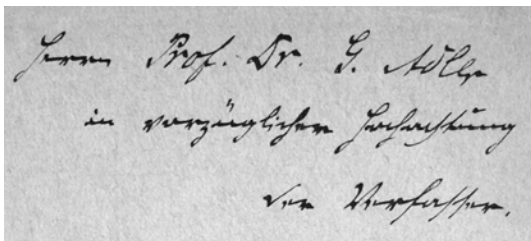 Herrn Prof. Dr. G. Adler
in vorzüglicher Hochachtung
der Verfasser.